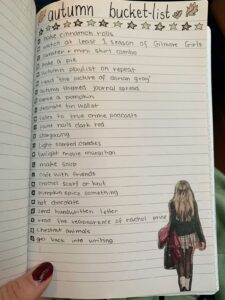 autumn bucket-list
make cinnamon rolls
watch at least 1 season of Gilmore Girls
sweater + mini skirt combo
bake a pie
autumn playlist on repeat
read 'the picture of dorian gray'
autumn themed journal spread
carve a pumpkin
decorate tin wallet
listen to true crime podcasts
paint nails dark red
stargazing
light scented candles
twilight movie marathon
make soup
cafe with friends
crochet scarf or knit
pumpkin spice something
hot chocolate
send handwritten letter
read the disappearance of rachel
chestnut animals
get back into writing